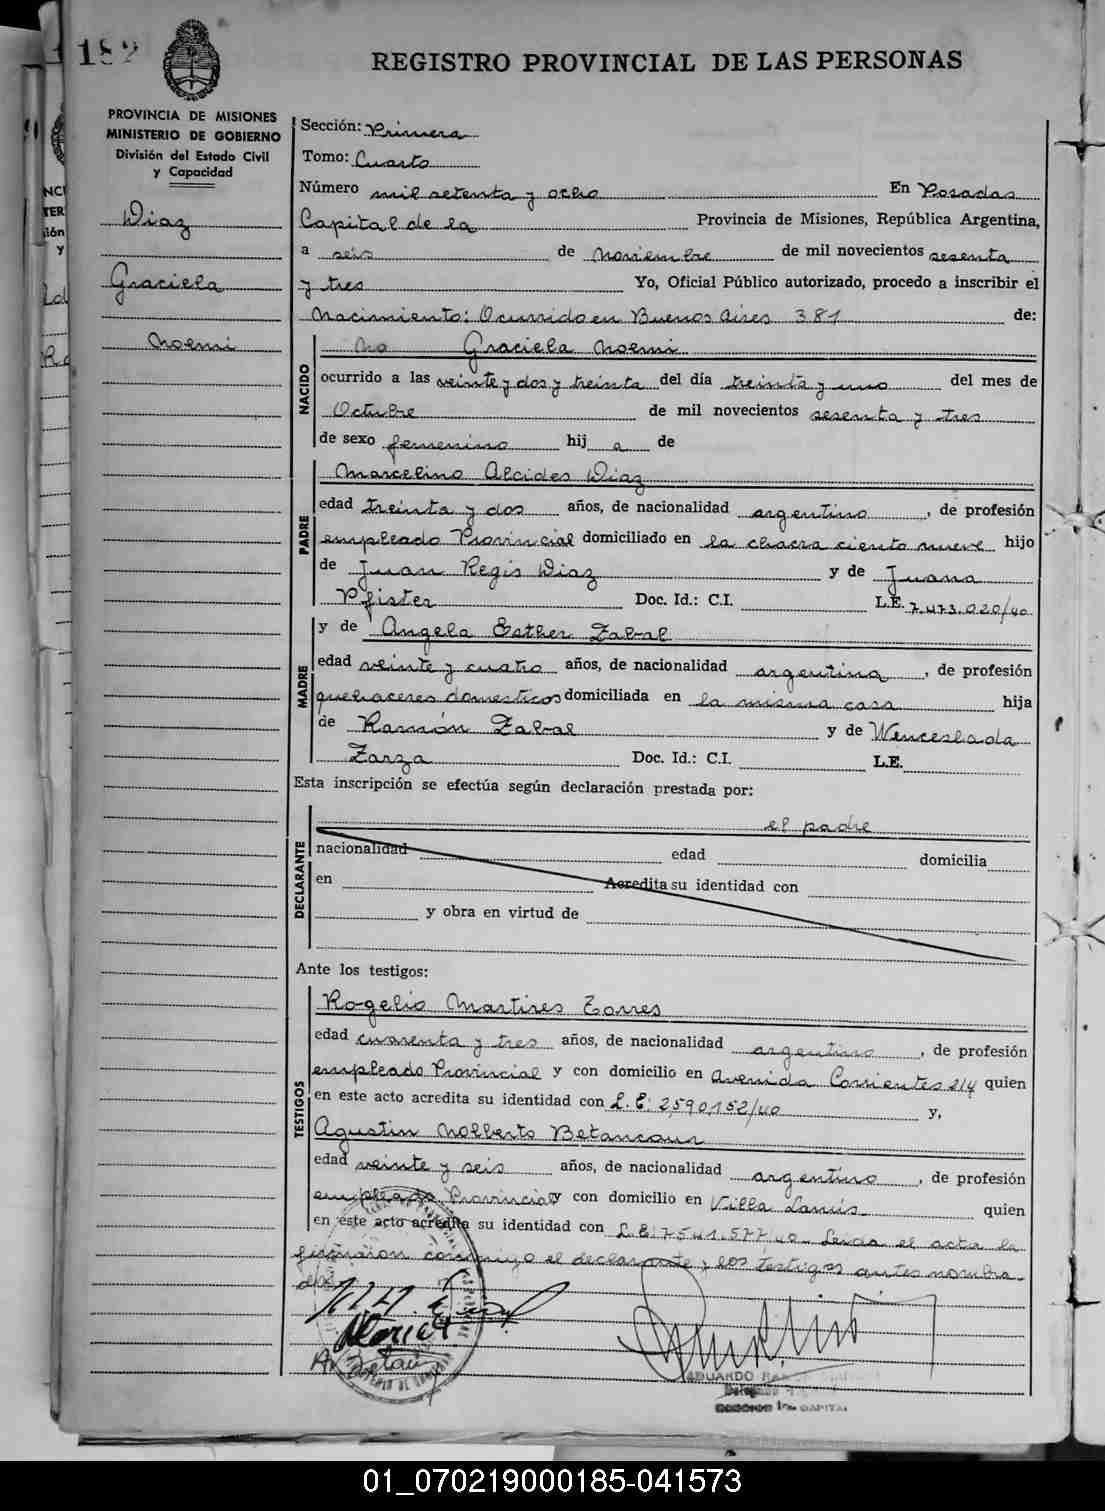 182
REGISTRO PROVINCIAL DE LAS PERSONAS
PROVINCIA DE MISIONES
MINISTERIO DE GOBIERNO
División del Estado Civil
y Capacidad
Diaz
Graciela
Noemi
Sección: Primera
Tomo: Cuarto
Número mil setenta y ocho En Posadas
Capital de la Provincia de Misiones, República Argentina,
a seis de Noviembre de mil novecientos sesenta
y tres Yo, Oficial Público autorizado, procedo a inscribir el
Nacimiento: Ocurrido en Buenos Aires 381 de:
NACIDO
No Graciela Noemi
ocurrido a las veinte y dos y treinta del día treinta y uno del mes de
Octubre de mil novecientos sesenta y tres
de sexo femenino hij a de
PADRE
Marcelino Alcides Diaz
edad treinta y dos años, de nacionalidad argentino, de profesión
empleado Provincial domiciliado en la chacra ciento nueve hijo
de Juan Regis Diaz y de Juana
Pfister Doc. Id.: C.I. L.E. 7.473.020/40
MADRE
y de Angela Esther Zabal
edad veinte y cuatro años, de nacionalidad argentina, de profesión
quehaceres domesticos domiciliada en la misma casa hija
de Ramón Zabal y de Wenceslada
Zarza Doc. Id.: C.I. L.E.
Esta inscripción se efectúa según declaración prestada por:
DECLARANTE
el padre
nacionalidad edad domicilia
en Acredita su identidad con
y obra en virtud de
Ante los testigos:
TESTIGOS
Rogelio Martires Torres
edad cuarenta y tres años, de nacionalidad argentino, de profesión
empleado Provincial y con domicilio en Avenida Corrientes 214 quien
en este acto acredita su identidad con L.E: 2,590152/40 y,
Agustin Nolberto Betancour
edad veinte y seis años, de nacionalidad argentino, de profesión
empleado Provincial y con domicilio en Villa Lanús quien
en este acto acredita su identidad con L.E: 7541.577/40. Leida el acta la
firmaron conmigo el declarante y los testigos antes nombra-
dos
EDUARDO
SECCION 1ra CAPITAL
01_070219000185-041573